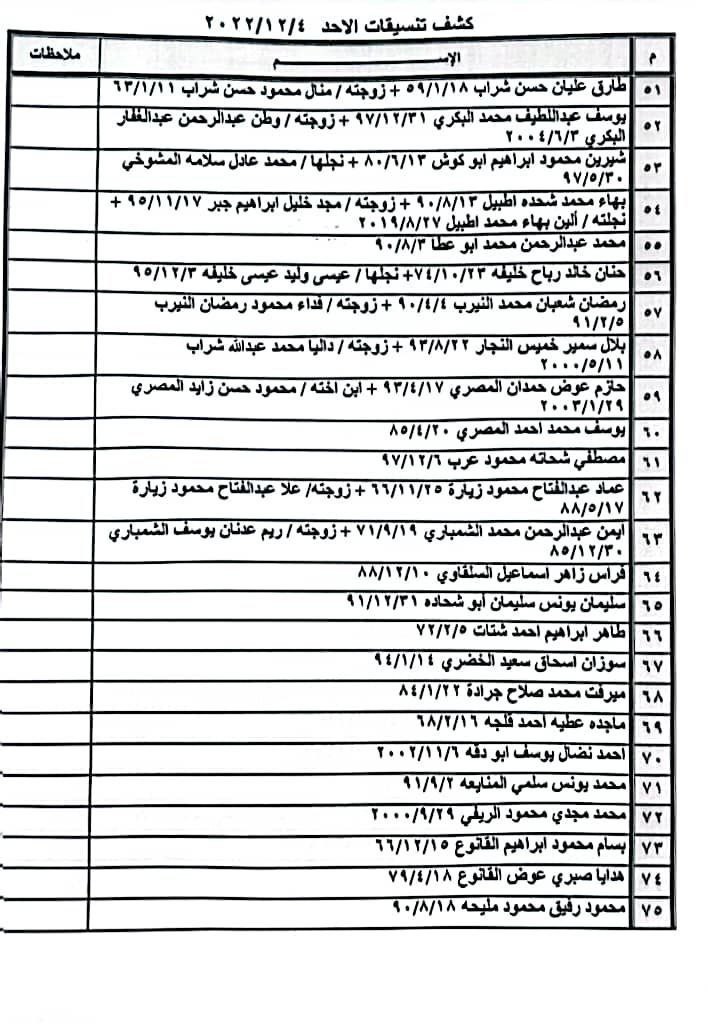 كشف تنسيقات الاحد ٢٠٢٢/١٢/٤
م الإســـــم ملاحظات
٥١ طارق عليان حسن شراب ٥٩/١/١٨ + زوجته / منال محمود حسن شراب ٦٣/١/١١
٥٢ يوسف عبداللطيف محمد البكري ٩٧/١٢/٣١ + زوجته / وطن عبدالرحمن عبدالغفار
البكري ٢٠٠٤/٦/٣
٥٣ شيرين محمود ابراهيم ابو كوش ٨٠/٦/١٣ + نجلها / محمد عادل سلامه المشوخي
٩٧/٥/٣٠
٥٤ بهاء محمد شحده اطبيل ٩٠/٨/١٣ + زوجته / مجد خليل ابراهيم جبر ٩٥/١١/١٧ +
نجلته / ألين بهاء محمد اطبيل ٢٠١٩/٨/٢٧
٥٥ محمد عبدالرحمن محمد ابو عطا ٩٠/٨/٣
٥٦ حنان خالد رباح خليفه ٧٤/١٠/٢٣+ نجلها / عيسى وليد عيسى خليفه ٩٥/١٢/٣
٥٧ رمضان شعبان محمد النيرب ٩٠/٤/٤ + زوجته / فداء محمود رمضان النيرب
٩١/٢/٥
٥٨ بلال سمير خميس النجار ٩٣/٨/٢٢ + زوجته / داليا محمد عبدالله شراب
٢٠٠٠/٥/١١
٥٩ حازم عوض حمدان المصري ٩٣/٤/١٧ + ابن اخته / محمود حسن زايد المصري
٢٠٠٣/١/٢٩
٦٠ يوسف محمد احمد المصري ٨٥/٤/٢٠
٦١ مصطفي شحاته محمود عرب ٩٧/١٢/٦
٦٢ عماد عبدالفتاح محمود زيارة ٦٦/١١/٢٥ + زوجته/ علا عبدالفتاح محمود زيارة
٨٨/٥/١٧
٦٣ ايمن عبدالرحمن محمد الشمباري ٧١/٩/١٩ + زوجته / ريم عدنان يوسف الشمباري
٨٥/١٢/٣٠
٦٤ فراس زاهر اسماعيل السلقاوي ٨٨/١٢/١٠
٦٥ سليمان يونس سليمان أبو شحاده ٩١/١٢/٣١
٦٦ طاهر ابراهيم احمد شتات ٧٢/٢/٥
٦٧ سوزان اسحاق سعيد الخضري ٩٤/١/١٤
٦٨ ميرفت محمد صلاح جرادة ٨٤/١/٢٢
٦٩ ماجده عطيه احمد قلجه ٦٨/٢/١٦
٧٠ احمد نضال يوسف ابو دقه ٢٠٠٢/١١/٦
٧١ محمد يونس سلمي المنايعه ٩١/٩/٢
٧٢ محمد مجدي محمود الريفي ٢٠٠٠/٩/٢٩
٧٣ بسام محمود ابراهيم القانوع ٦٦/١٢/١٥
٧٤ هدايا صبري عوض القانوع ٧٩/٤/١٨
٧٥ محمود رفيق محمود مليحه ٩٠/٨/١٨